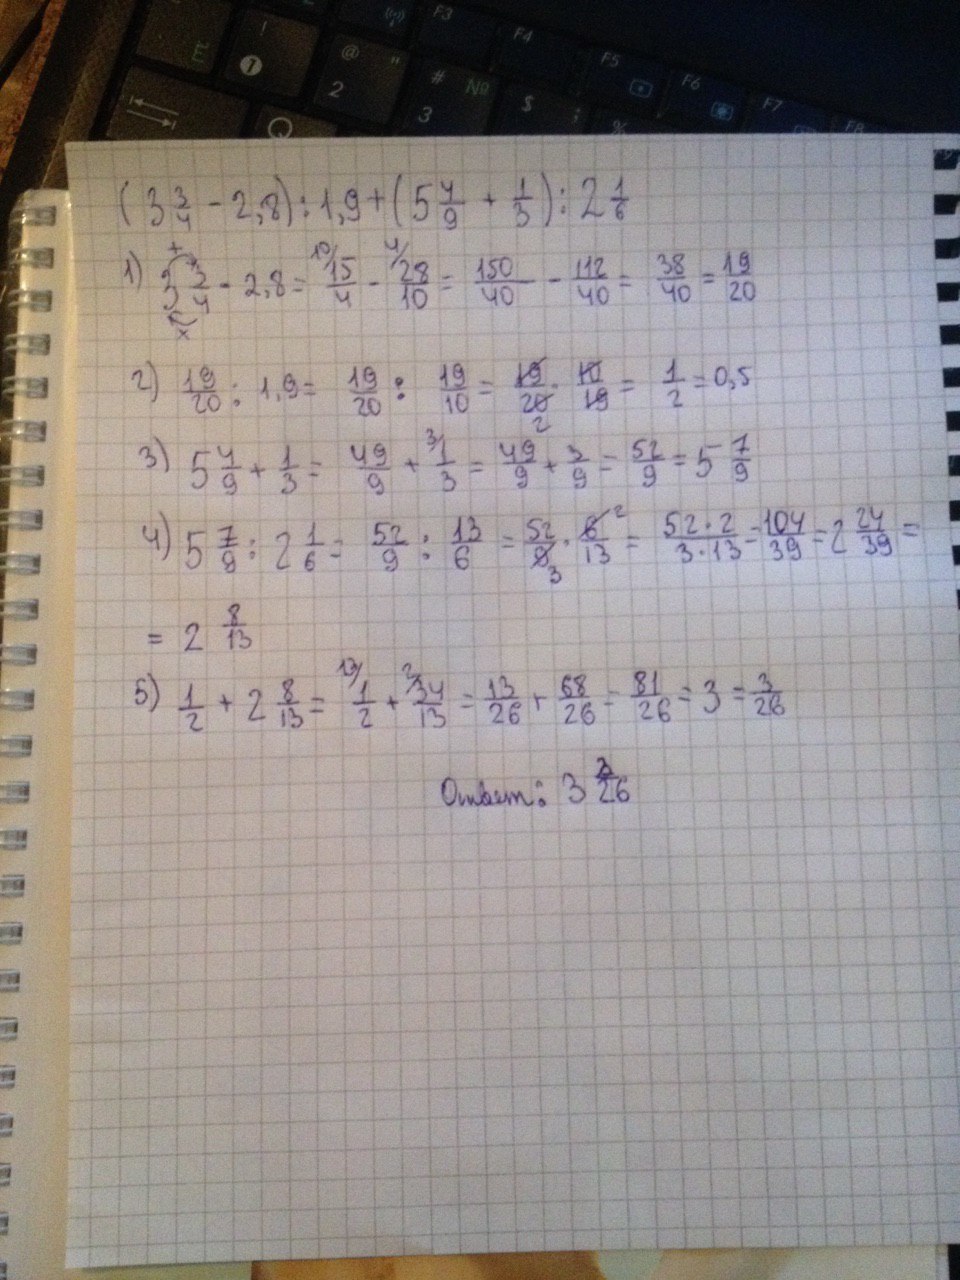 E ! @ " # № $ ; % F3 F4 F5 F6 F7 F8
2 3 Q
(3 3/4 - 2,8) : 1,9 + (5 4/9 + 1/3) : 2 1/6
1) 3 3/4 - 2,8 = 10/ 15/4 - 4/ 28/10 = 150/40 - 112/40 = 38/40 = 19/20
+ x
2) 19/20 : 1,9 = 19/20 : 19/10 = 19/20 · 10/19 = 1/2 = 0,5
2
3) 5 4/9 + 1/3 = 49/9 + 3/ 1/3 = 49/9 + 3/9 = 52/9 = 5 7/9
4) 5 7/9 : 2 1/6 = 52/9 : 13/6 = 52/9 · 6/13 = 52·2/3·13 = 104/39 = 2 24/39 =
3 2
= 2 8/13
5) 1/2 + 2 8/13 = 13/ 1/2 + 2/ 34/13 = 13/26 + 68/26 = 81/26 = 3 = 3/26
Ответ: 3 3/26